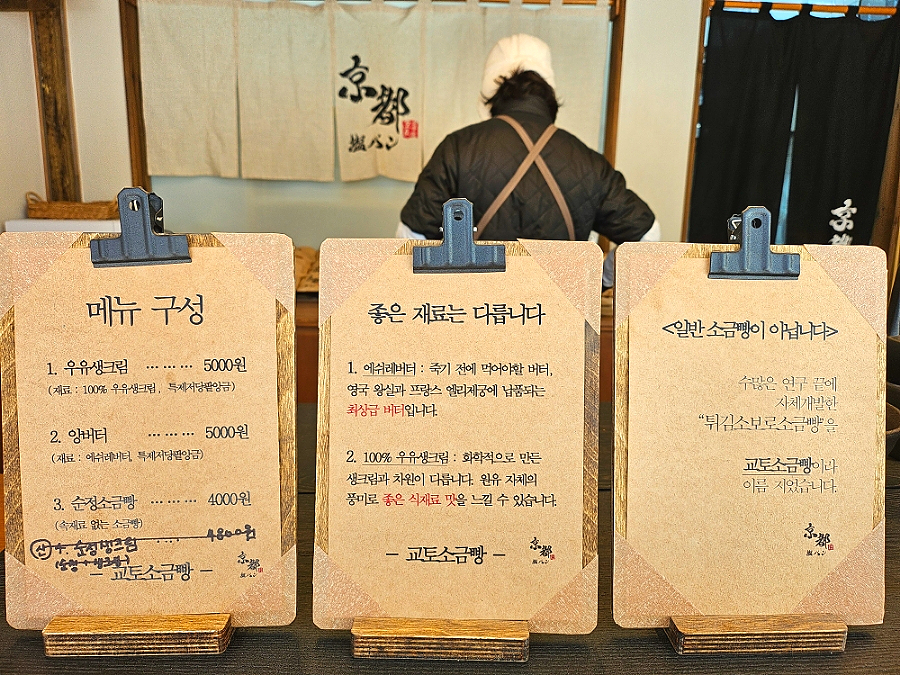 京都
塩パン
京都
메뉴 구성
1. 우유생크림 ········· 5000원
(재료 : 100% 우유생크림, 특제저당팥앙금)
2. 앙버터 ········· 5000원
(재료 : 에쉬레버터, 특제저당팥앙금)
3. 순정소금빵 ········· 4000원
(속재료 없는 소금빵)
4. 순정생크림 ···· 4800원
- 교토소금빵 -
京都
塩パン
좋은 재료는 다릅니다
1. 에쉬레버터 : 죽기 전에 먹어야할 버터,
영국 왕실과 프랑스 엘리제궁에 납품되는
최상급 버터입니다.
2. 100% 우유생크림 : 화학적으로 만든
생크림과 차원이 다릅니다. 원유 자체의
풍미로 좋은 식재료 맛을 느낄 수 있습니다.
- 교토소금빵 -
京都
塩パン
<일반 소금빵이 아닙니다>
수많은 연구 끝에
자체개발한
"튀김소보로소금빵"을
교토소금빵이라
이름 지었습니다.
京都
塩パン